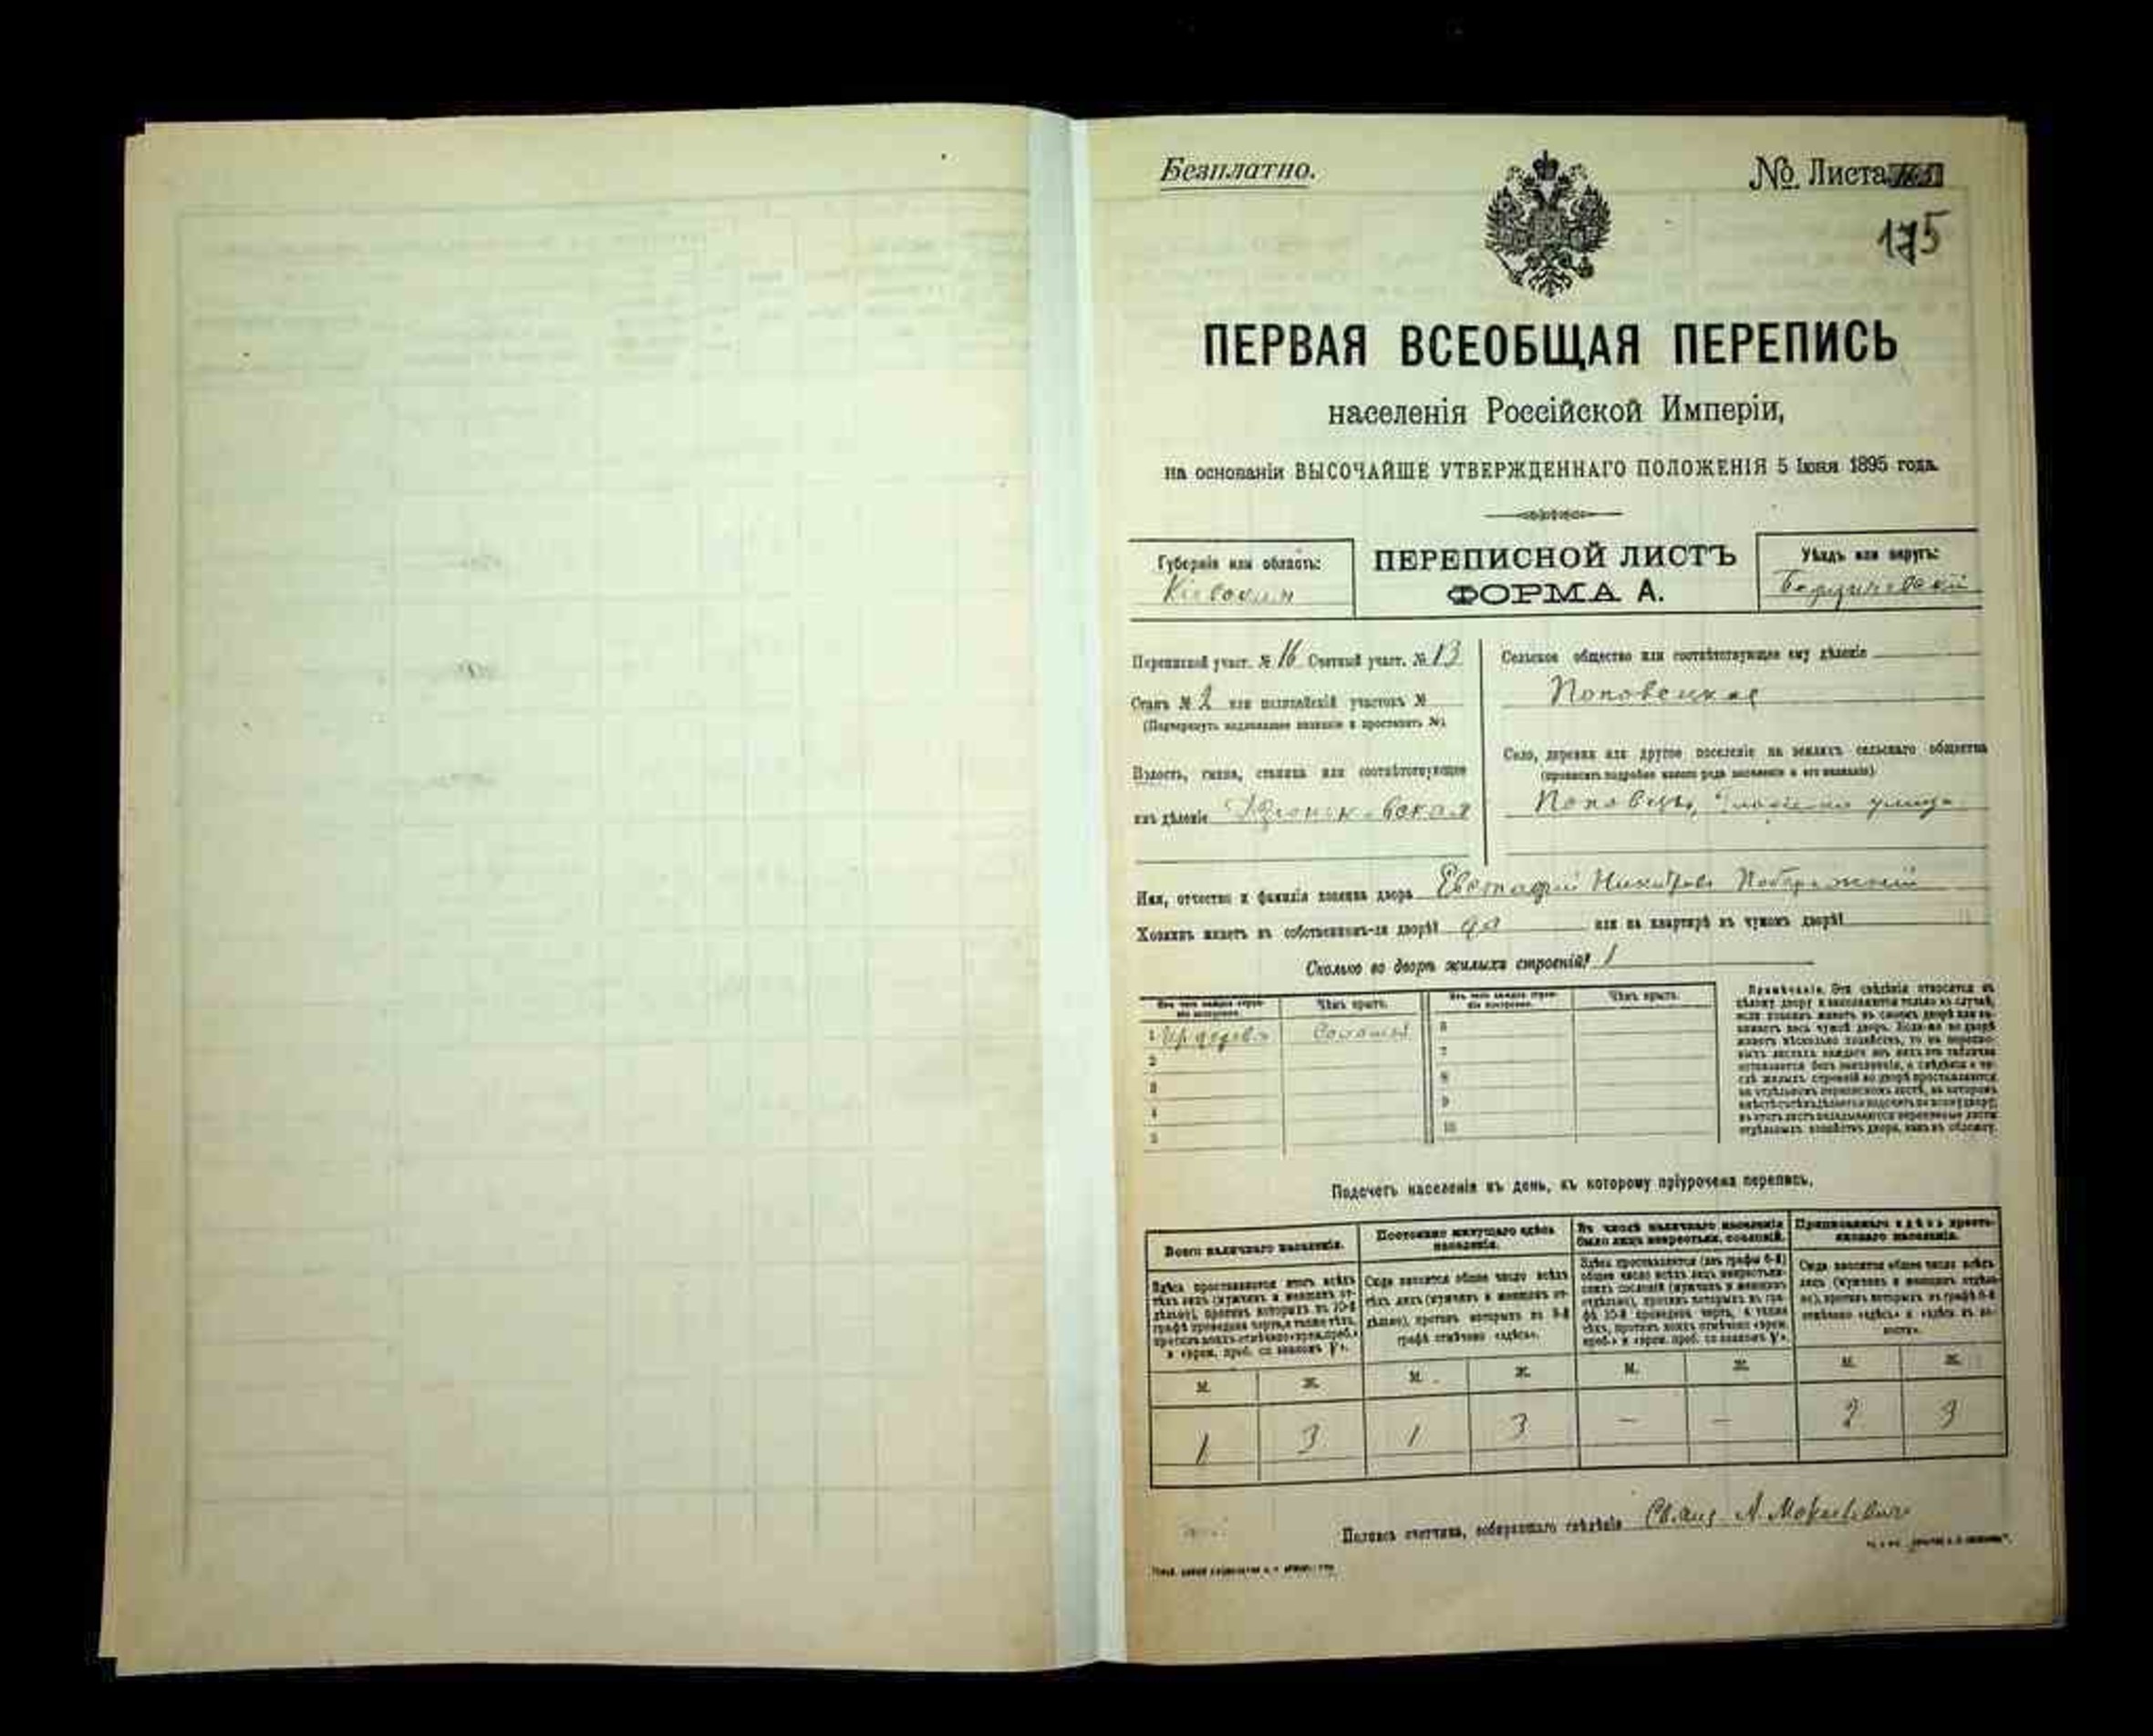 Безплатно.
№ Листа
175
ПЕРВАЯ ВСЕОБЩАЯ ПЕРЕПИСЬ
населенія Россійской Имперіи,
на основаніи ВЫСОЧАЙШЕ УТВЕРЖДЕННАГО ПОЛОЖЕНІЯ 5 Іюня 1895 года.
Губернія или область:
Кіевская
ПЕРЕПИСНОЙ ЛИСТЪ
ФОРМА А.
Уѣздъ или округъ:
Бердичевскій
Переписной участ. № 16 Счетный участ. № 13
Станъ № 2 или полицейскій участокъ №
(Подчеркнуть надлежащее названіе и проставить №)
Волость, гмина, станица или соотвѣтствующее
имъ дѣленіе
Сельское общество или соотвѣтствующее ему дѣленіе
Поповецкая
Село, деревня или другое поселеніе на земляхъ сельскаго общества
(прописать подробно какого рода поселеніе и его названіе).
Поповцы, улица
Имя, отчество и фамилія хозяина двора Евстафій Никитовъ Побережный
Хозяинъ живетъ въ собственномъ-ли дворѣ? да или на квартирѣ въ чужомъ дворѣ?
Сколько во дворѣ жилыхъ строеній? 1
Изъ чего каждое строеніе построено. Чѣмъ крыто. Изъ чего каждое строеніе построено. Чѣмъ крыто.
1 Изъ дерева Соломой 6
2 7
3 8
4 9
5 10
Примѣчаніе. Эти свѣдѣнія относятся къ
цѣлому двору и заполняются только въ случаѣ,
если хозяинъ живетъ въ своемъ дворѣ или за-
нимаетъ весь чужой дворъ. Если-же во дворѣ
живетъ нѣсколько хозяйствъ, то въ перепис-
ныхъ листахъ каждаго изъ нихъ эта табличка
оставляется безъ заполненія, а свѣдѣнія о чи-
слѣ жилыхъ строеній во дворѣ проставляются
на отдѣльномъ переписномъ листѣ, на которомъ
вмѣстѣ съ тѣмъ дѣлается подсчетъ по всему двору;
въ этотъ листъ вкладываются переписные листы
отдѣльныхъ хозяйствъ двора, какъ въ обложку.
Подсчетъ населенія въ день, къ которому пріурочена перепись.
Всего наличнаго населенія.
Здѣсь проставляются итогъ всѣхъ
тѣхъ лицъ (мужчинъ и женщинъ от-
дѣльно), противъ которыхъ въ 10-й
графѣ проведена черта, а также тѣхъ,
противъ коихъ отмѣчено «врем. проб.»
и «врем. проб. со знакомъ V».
Постоянно живущаго здѣсь
населенія.
Сюда вносится общее число всѣхъ
тѣхъ лицъ (мужчинъ и женщинъ от-
дѣльно), противъ которыхъ въ 9-й
графѣ отмѣчено «здѣсь».
Въ числѣ наличнаго населенія
было лицъ некрестьян. сословій.
Здѣсь проставляется (изъ графы 6-й)
общее число всѣхъ лицъ некрестьян-
скихъ сословій (мужчинъ и женщинъ
отдѣльно), противъ которыхъ въ гра-
фѣ 10-й проведена черта, а также
тѣхъ, противъ коихъ отмѣчено «врем.
проб.» и «врем. проб. со знакомъ V».
Приписаннаго здѣсь кресть-
янскаго населенія.
Сюда вносится общее число всѣхъ
лицъ (мужчинъ и женщинъ отдѣль-
но), противъ которыхъ въ графѣ 8-й
отмѣчено «здѣсь» и «здѣсь въ во-
лости».
М. Ж. М. Ж. М. Ж. М. Ж.
1 3 1 3 — — 2 3
Подпись счетчика, собиравшаго свѣдѣнія